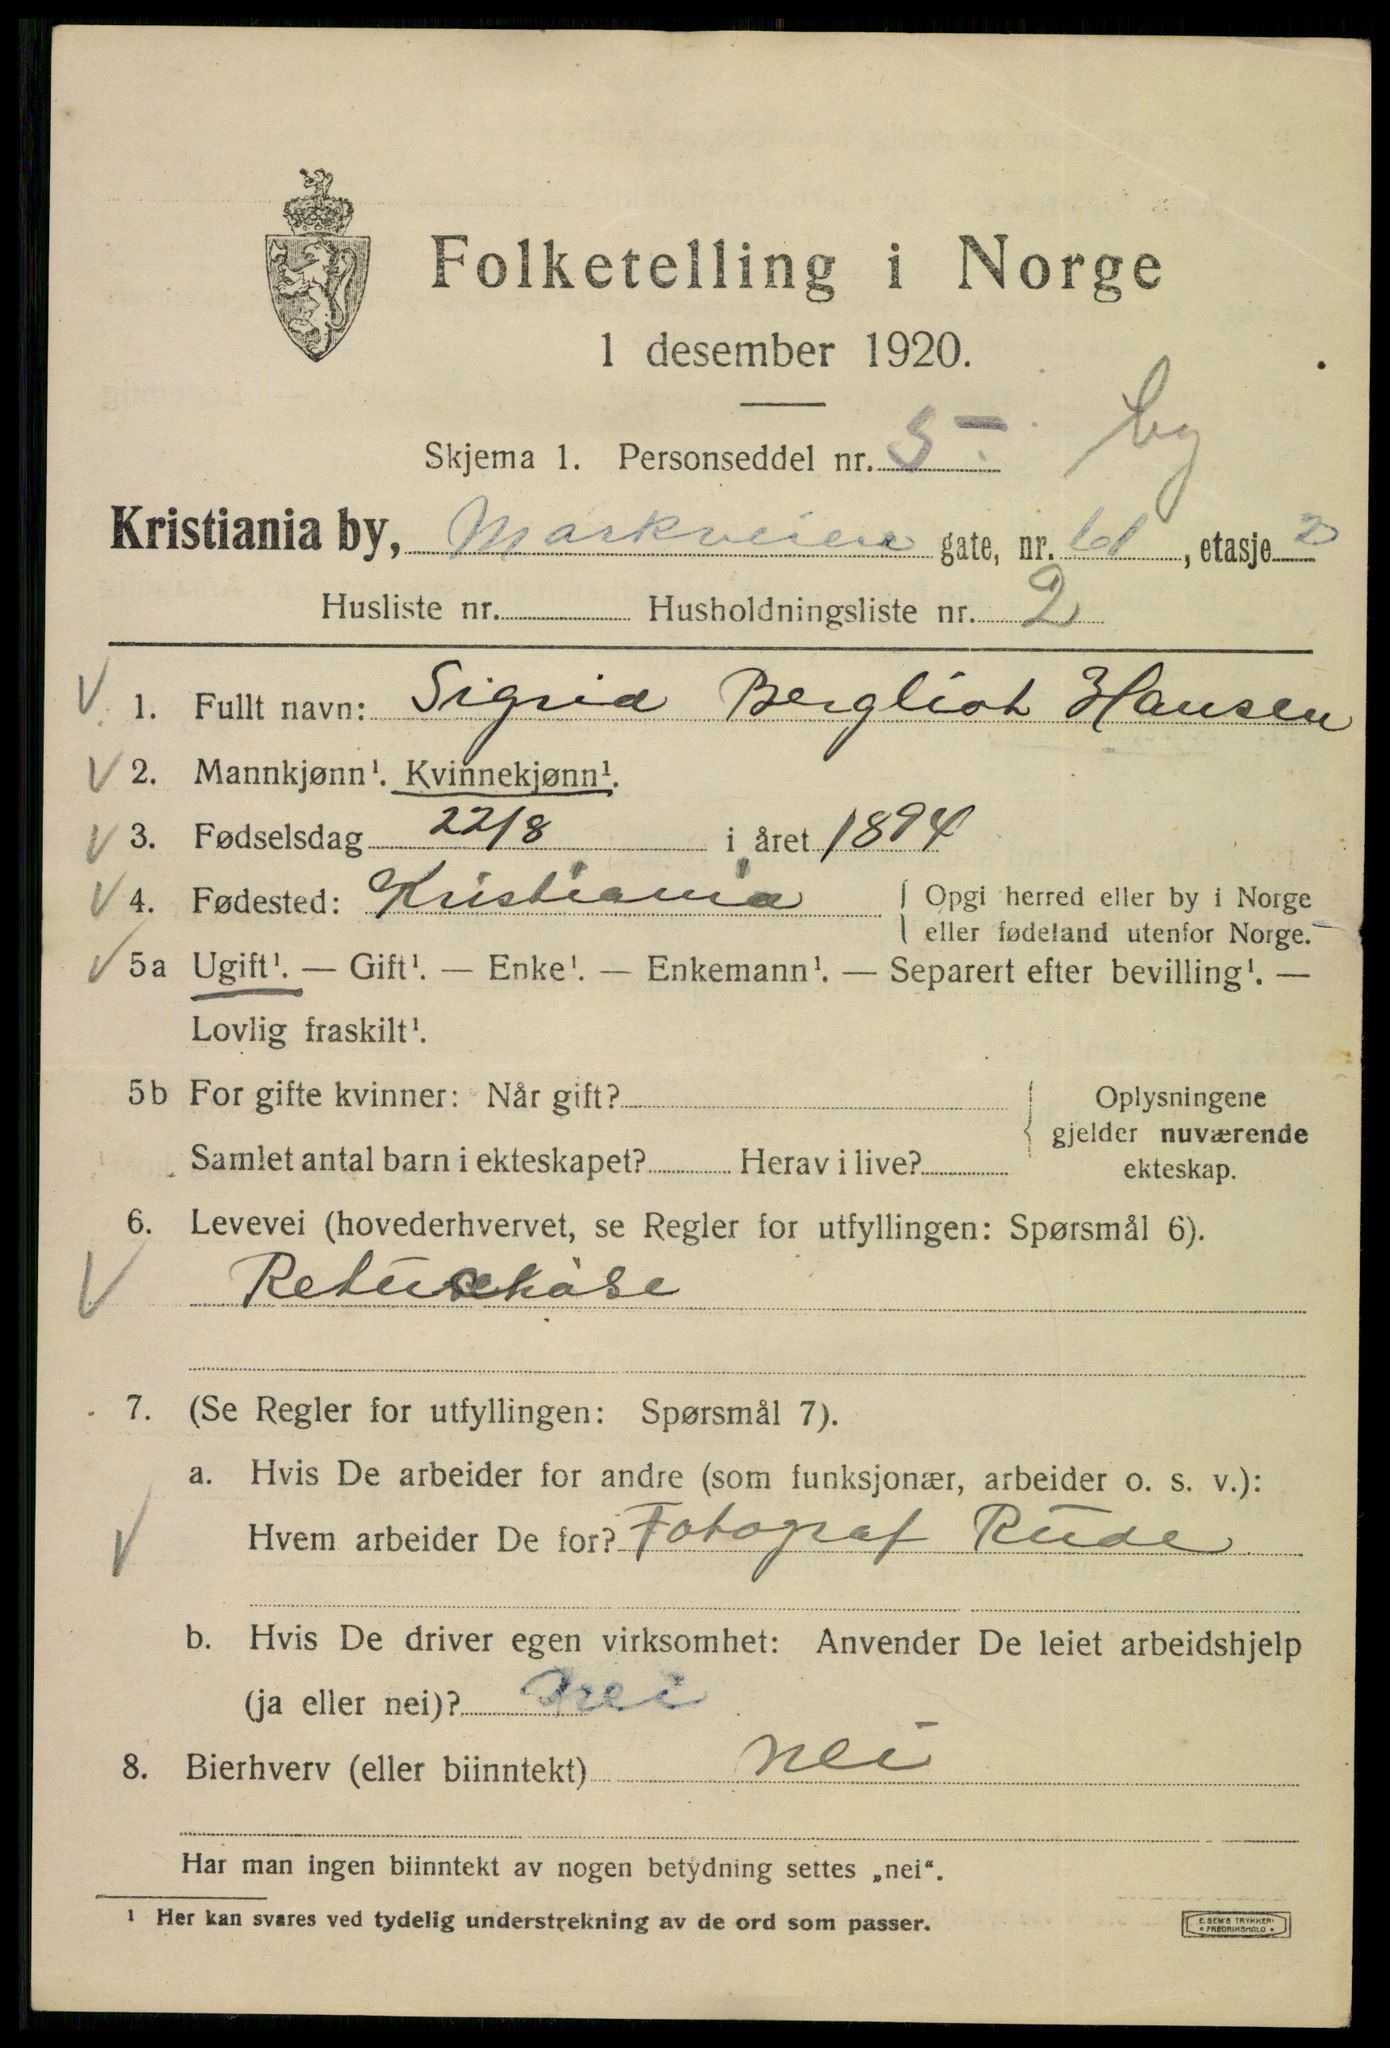 Folketelling i Norge
1 desember 1920.
Skjema 1. Personseddel nr. 5
Kristiania by, Markveien gate, nr. 61, etasje 2
Husliste nr. Husholdningsliste nr. 2
1. Fullt navn: Sigrid Bergliot Hansen
2. Mannkjønn¹. Kvinnekjønn¹.
3. Fødselsdag 22/8 i året 1894
4. Fødested: Kristiania { Opgi herred eller by i Norge
eller fødeland utenfor Norge.
5a Ugift¹. — Gift¹. — Enke¹. — Enkemann¹. — Separert efter bevilling¹. —
Lovlig fraskilt¹.
5b For gifte kvinner: Når gift? { Oplysningene
gjelder nuværende
Samlet antal barn i ekteskapet? Herav i live? ekteskap.
6. Levevei (hovederhvervet, se Regler for utfyllingen: Spørsmål 6).
7. (Se Regler for utfyllingen: Spørsmål 7).
a. Hvis De arbeider for andre (som funksjonær, arbeider o. s. v.):
Hvem arbeider De for? Fotograf Rude
b. Hvis De driver egen virksomhet: Anvender De leiet arbeidshjelp
(ja eller nei)? nei
8. Bierhverv (eller biinntekt) nei
Har man ingen biinntekt av nogen betydning settes „nei“.
¹ Her kan svares ved tydelig understrekning av de ord som passer.
E. SEM'S TRYKKERI
* FREDRIKSHALD *